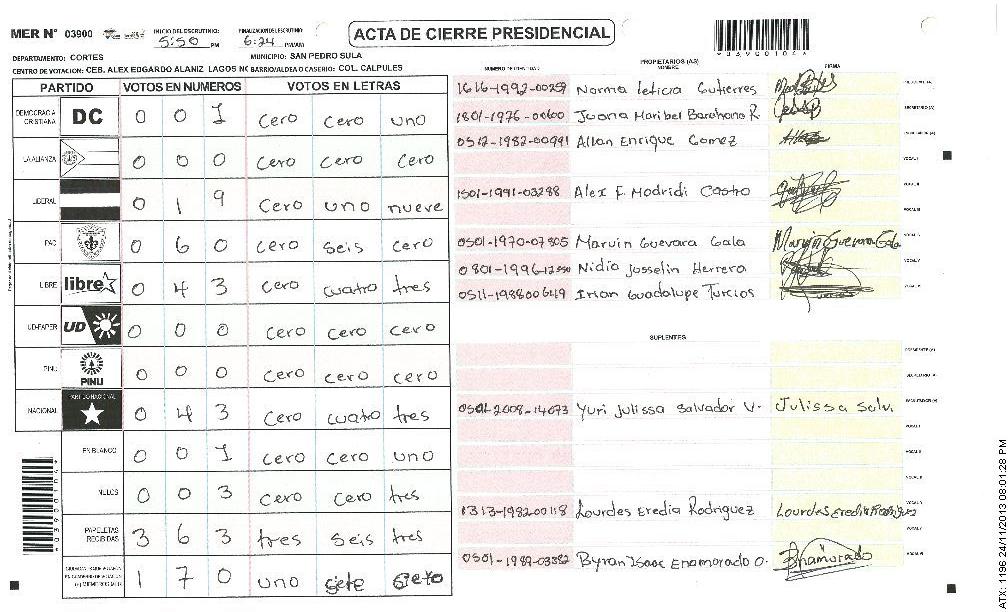 MER N° 03900 INICIO DEL ESCRUTINIO: 5:50 PM FINALIZACION ESCRUTINIO: 6:24 PM/AM ACTA DE CIERRE PRESIDENCIAL
*03900104*
DEPARTAMENTO: CORTES MUNICIPIO: SAN PEDRO SULA
CENTRO DE VOTACION: CEB. ALEX EDGARDO ALANIZ LAGOS NC BARRIO/ALDEA O CASERIO: COL. CALPULES
PARTIDO VOTOS EN NUMEROS VOTOS EN LETRAS
DEMOCRACIA CRISTIANA DC 0 0 1 cero cero uno
LA ALIANZA 0 0 0 cero cero cero
LIBERAL 0 1 9 cero uno nueve
PAC 0 6 0 cero seis cero
LIBRE libre 0 4 3 cero cuatro tres
UD-FAPER UD 0 0 0 cero cero cero
PINU PINU 0 0 0 cero cero cero
NACIONAL PARTIDO NACIONAL 0 4 3 cero cuatro tres
EN BLANCO 0 0 1 cero cero uno
NULOS 0 0 3 cero cero tres
PAPELETAS RECIBIDAS 3 6 3 tres seis tres
1 7 0 uno siete cero
PROPIETARIOS (AS)
NUMERO DE IDENTIDAD NOMBRE FIRMA
1616-1992-00259 Norma leticia Gutierres
1801-1976-00600 Juana Maribel Barahona R
0512-1982-00991 Allan Enrique Gomez
1501-1991-03288 Alex F. Madridi Castro
0501-1970-07805 Marvin Guevara Gala Marvin Guevara Gala
0801-1996-12550 Nidia Josselin Herrera
0511-198800649 Irian Guadalupe Turcios
SUPLENTES
0501-2008-14073 Yuri Julissa Salvador V. Julissa Salv.
1313-1982-00118 Lourdes Eredia Rodriguez Lourdes Eredia Rodriguez
0501-1989-03382 Byran Isaac Enamorado O. Enamorado
ATX: 1196 24/11/2013 08:01:28 PM